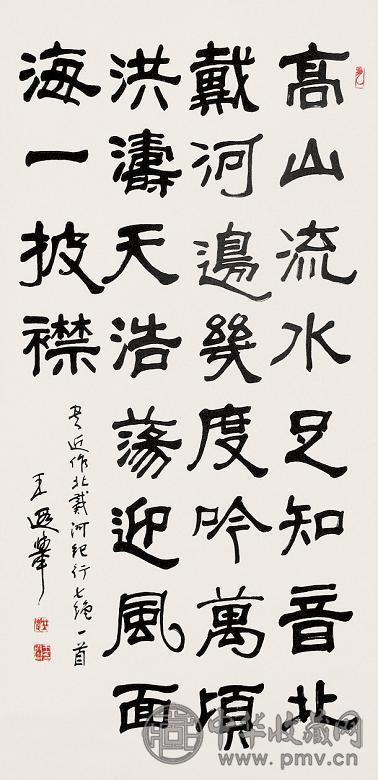 髙山流水足知音北
戴河邊幾度吟萬頃
洪濤天浩蕩迎風面
海一披襟
書近作北戴河紀行七絶一首
王遐舉
中华收藏网
www.pmv.cn